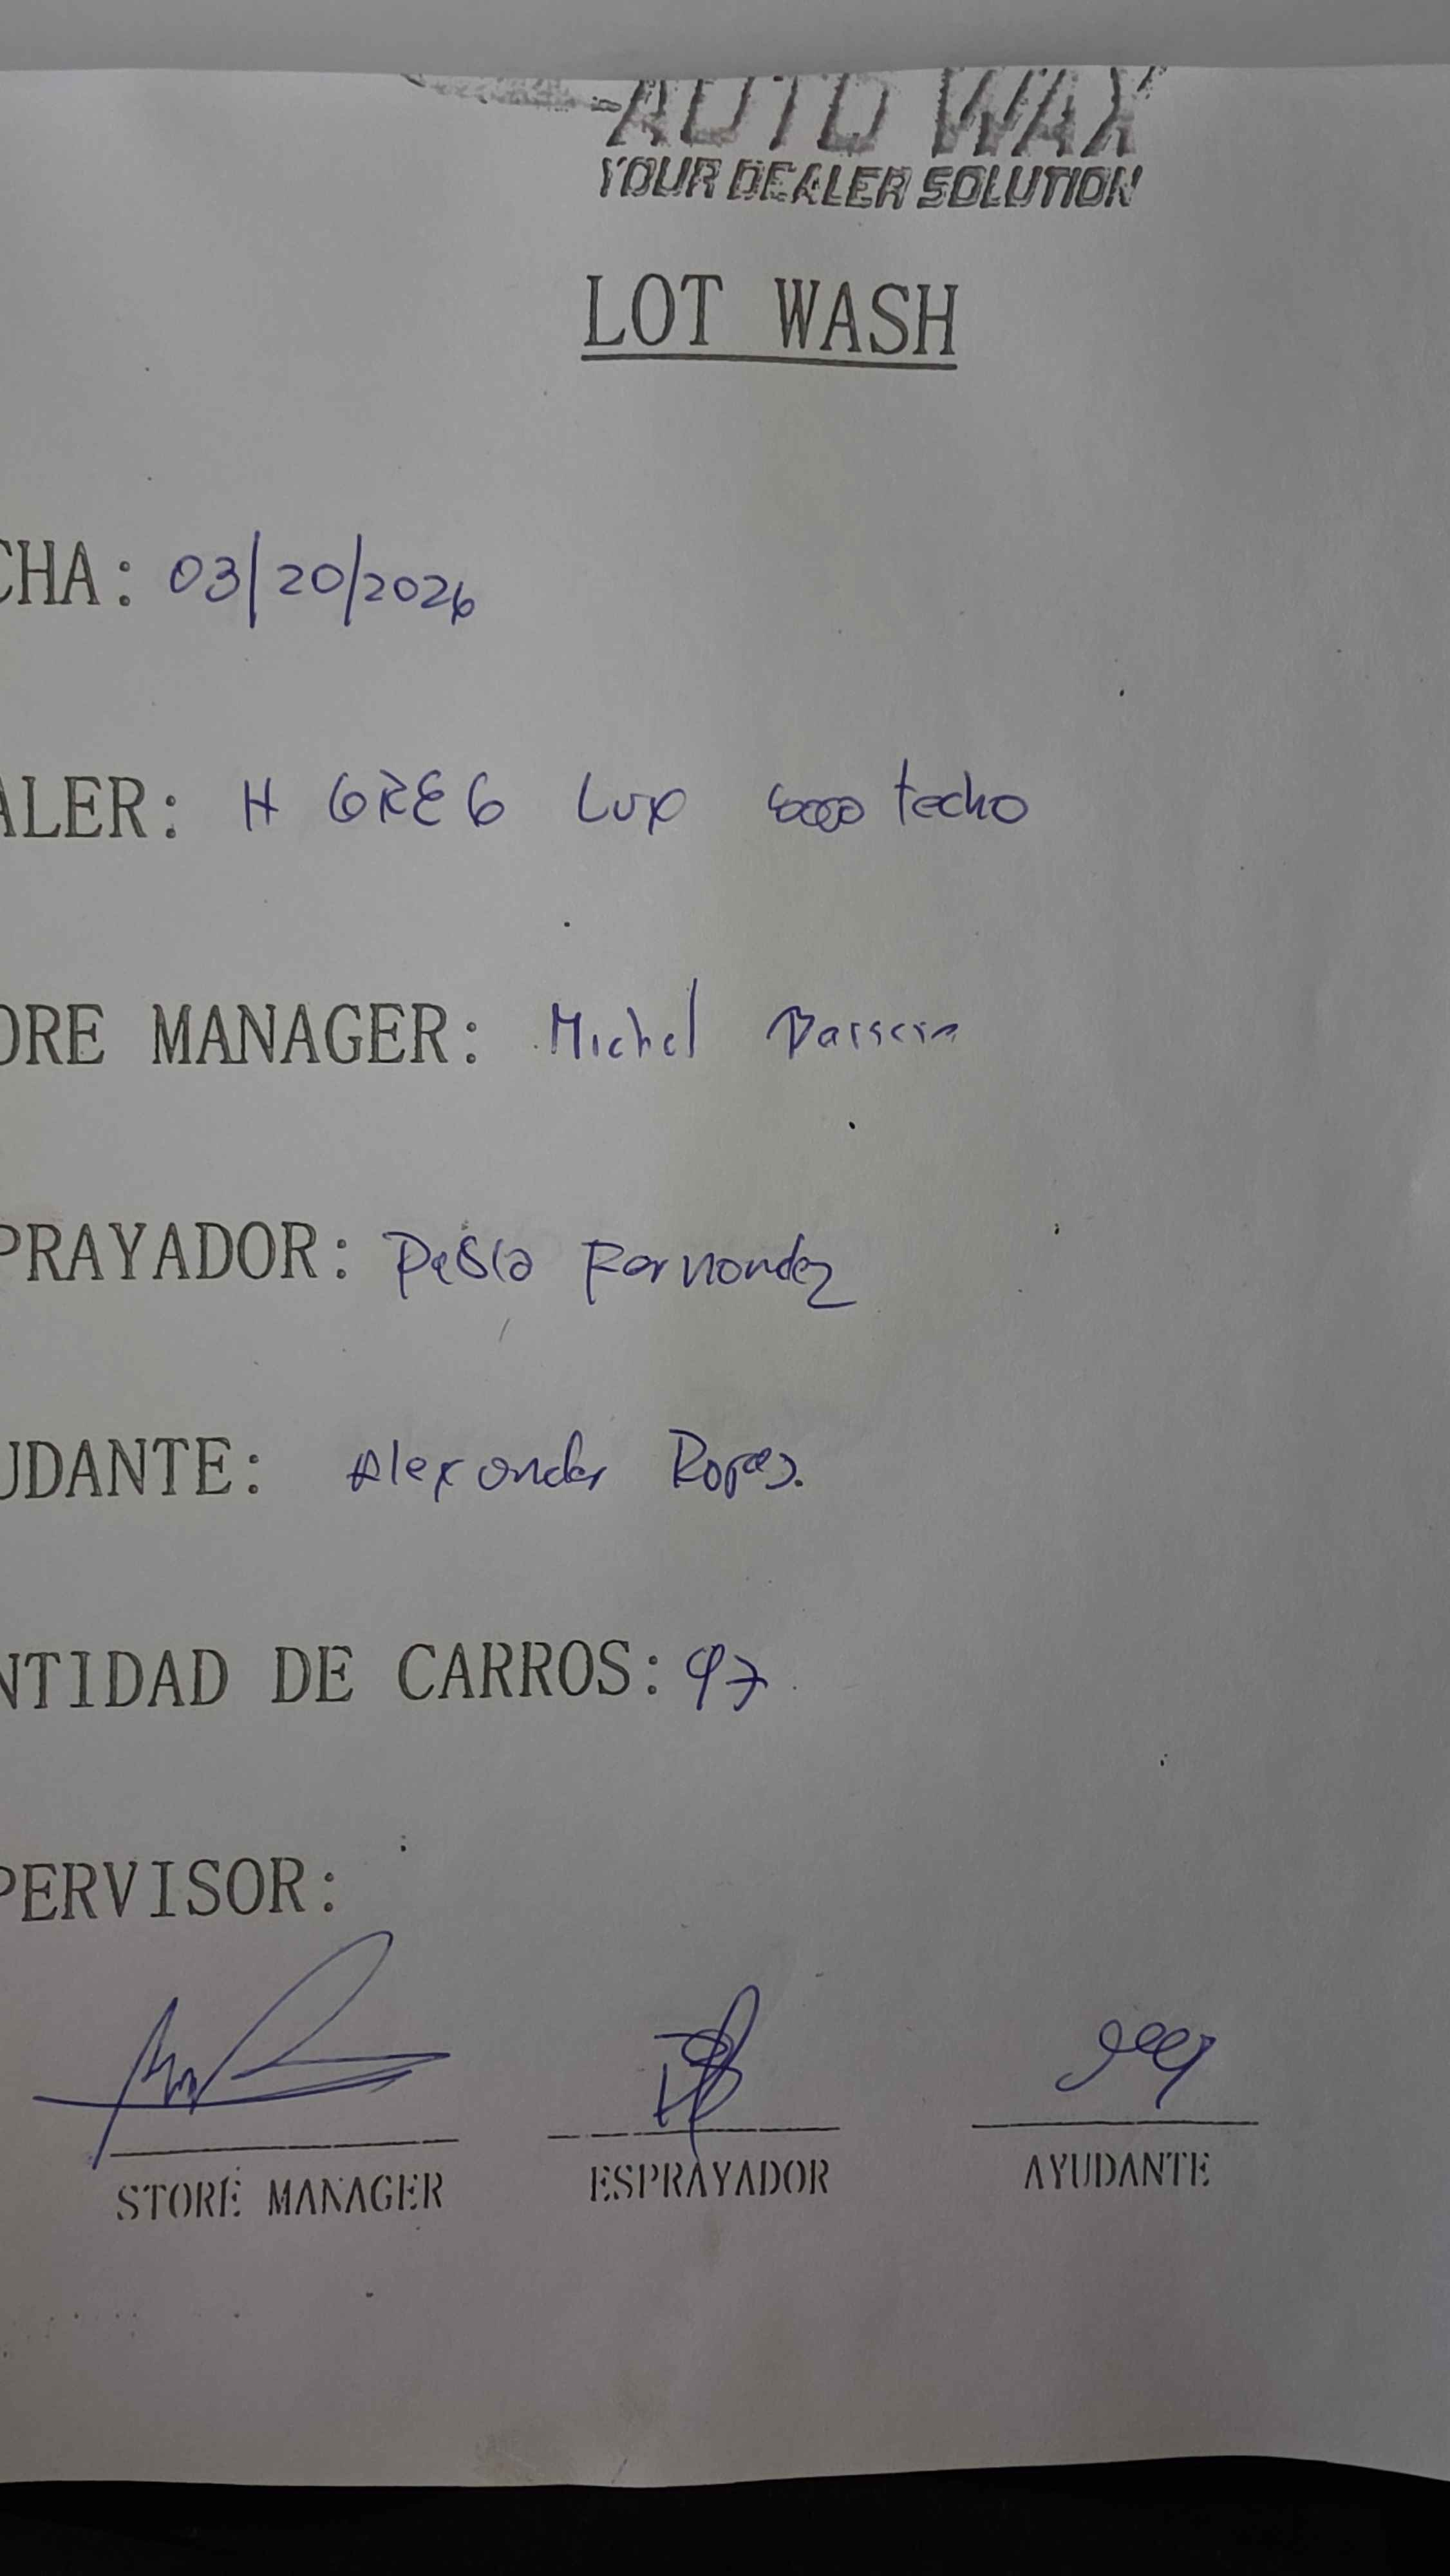 AUTO WAX
YOUR DEALER SOLUTION
LOT WASH
CHA: 03/20/2026
ALER: H GREG Lux techo
ORE MANAGER: Michel
PRAYADOR: Pablo Fernandez
UDANTE: Alexander
NTIDAD DE CARROS: 97
PERVISOR:
STORE MANAGER ESPRAYADOR AYUDANTE